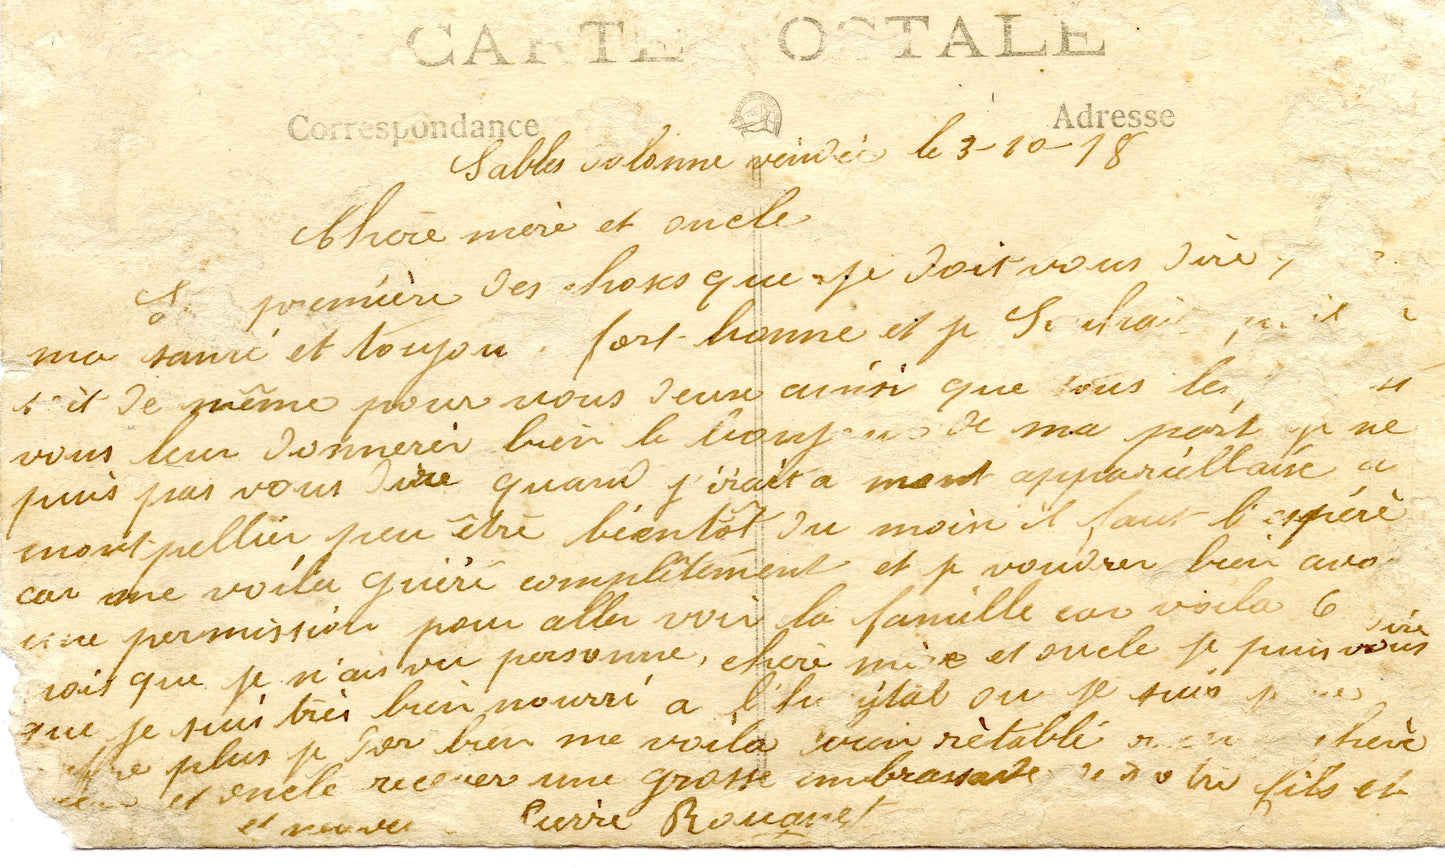 CARTE POSTALE
Correspondance
Adresse
Sables dolonne veindée le 3-10-18
Chère mère et oncle
première des choses que je doit vous dire
ma santé et toujou fort bonne et je Souhait
soit de même pour vous deux ainsi que tous les
vous leur donnerér bien le bonjour de ma part je ne
puis pas vous dire quand j'irait a mont appareillaise a
mont pellier peu être bientôt du moin il faut l'espéré
car me voila guéri complêtement et je voudrer bien avo
une permission pour aller voir la famille car voila 6
mois que je n'ais vu personne, chère mère et oncle je puis vous dire
que je suis très bien nourri a l'hopital ou je suis
plus je dor bien me voila bien rètabli chère
et oncle recever une grosse embrassade de votre fils et
et neuveu Pierre Rouquet